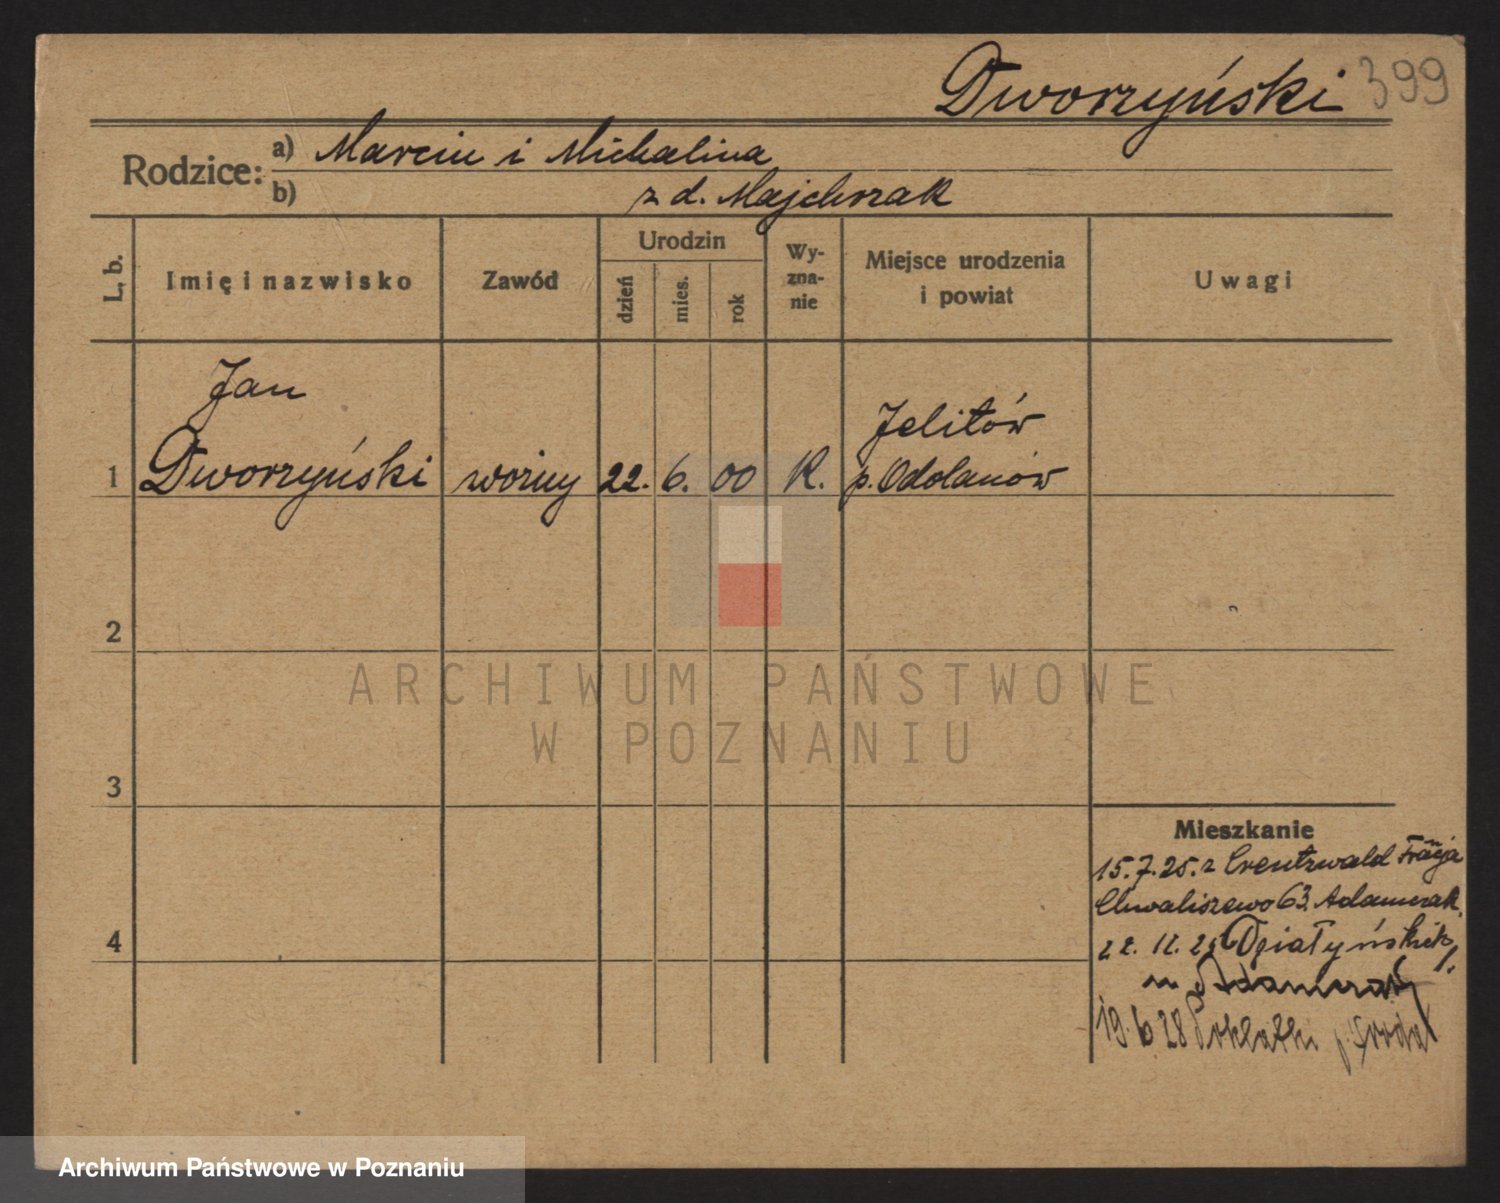 Dworzyński 399
Rodzice:
a) Marcin i Michalina
b) z d. Majchrzak
L. b.
Imię i nazwisko
Zawód
Urodzin
dzień
mies.
rok
Wy-
zna-
nie
Miejsce urodzenia
i powiat
Uwagi
Jan
1 Dworzyński woźny 22. 6. 00 K.
Jelitów
p. Odolanów
2
ARCHIWUM PAŃSTWOWE
W POZNANIU
3
Mieszkanie
15.7.25. z Creutzwald
Chwaliszewo 63. Adamczak.
4
22. 11. 25 Działyńskich
u Adamczak
19. 6 28 p. Środa
Archiwum Państwowe w Poznaniu